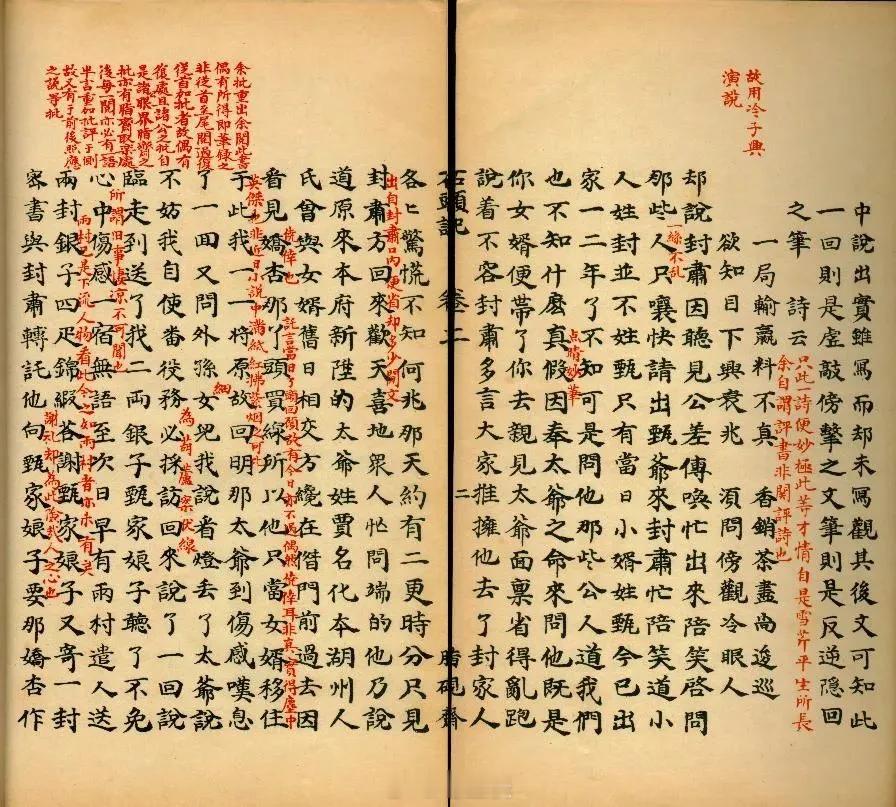 故用冷子興
演說
中說出實雖寫而却未寫觀其後文可知此
一回則是虛敲傍擊之文筆則是反逆隱回
之筆 詩云
只此一詩便妙極此等才情自是雪芹平生所長
余自謂評書非関評詩也
一局輸贏料不真 香銷茶盡尚逡巡
欲知目下興衰兆 須問傍觀冷眼人
却說封肅因聽見公差傳喚忙出來陪笑啓問
一絲不乱
那些人只嚷快請出甄爺來封肅忙陪笑道小
人姓封並不姓甄只有當日小婿姓甄今已出
家一二年了不知可是問他那些公人道我們
点睛妙筆
也不知什庅真假因奉太爺之命來問他既是
你女婿便帶了你去親見太爺面稟省得亂跑
說着不容封肅多言大家推擁他去了封家人
石頭記 卷二 二 脂硯齋
余批重出余閱此書
偶有所得即筆錄之
非從首至尾閱過復
從首加批者故偶有
復處且諸公之批自
是諸眼界脂齋之
批亦有脂齋取樂處
後每一閱亦必有語
半言重加批評于側
故又有于前後照應
之說等批
各〻驚慌不知何兆那天約有二更時分只見
出自封肅口內便省却多少閒文
封肅方回來歡天喜地眾人忙問端的他乃說
道原來本府新陞的太爺姓賈名化本湖州人
氏曾與女婿舊日相交方纔在偺門前過去因
僥倖也
託言當日丫頭回顧故有今日亦不過偶然僥倖耳非真實得塵中
看見嬌杏那丫頭買線所以他只當女婿移住
英傑也非近日小說中滿紙紅拂紫烟之可比
于此我一一將原故回明那太爺到傷感嘆息
細
了一回又問外孫女兒我說看燈丟了太爺說
為葫蘆案伏線
不妨我自使番役務必採訪回來說了一回說
臨走到送了我二兩銀子甄家娘子聽了不免
所謂旧事凄凉不可聞也
心中傷感一宿無語至次日早有雨村遣人送
雨村已是下流人物看此今之如雨村者亦未有矣
兩封銀子四疋錦緞荅謝甄家娘子又寄一封
謝礼却為此險哉人之心也
密書與封肅轉託他向甄家娘子要那嬌杏作